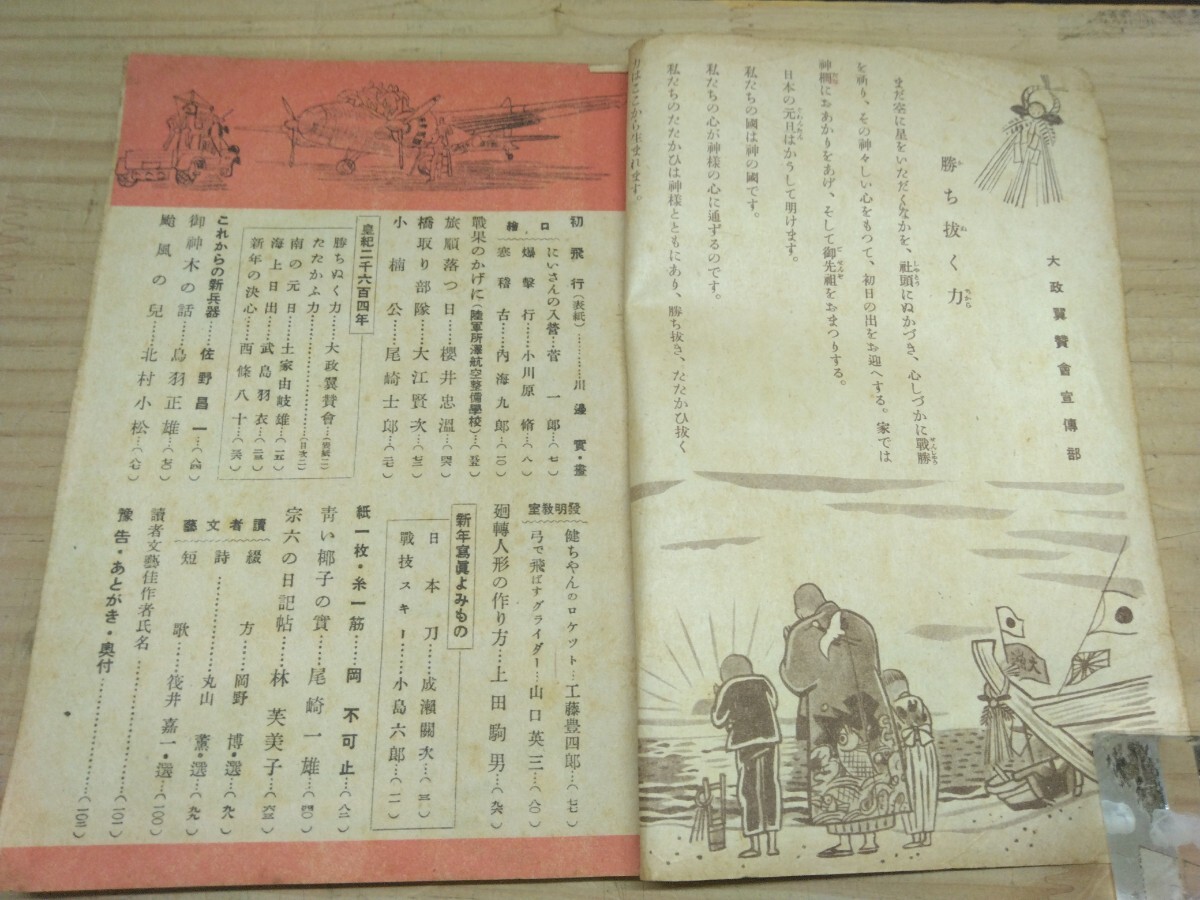 勝ち拔く力
大政翼賛會宣傳部
まだ空に星をいただくなかを、社頭にぬかづき、心しづかに戰勝
を祈り、その神々しい心をもつて、初日の出をお迎へする。家では
神棚におあかりをあげ、そして御先祖をおまつりする。
日本の元旦はかうして明けます。
私たちの國は神の國です。
私たちの心が神様の心に通ずるのです。
私たちのたたかひは神様とともにあり、勝ち拔き、たたかひ拔く
りはここから生まれます。
大漁
初飛行(表紙)………川邊實・畫
口繪
にいさんの入營…菅一郎…(七)
爆擊行…小川原脩…(八)
寒稽古…內海九郎…(一〇)
戰果のかげに(陸軍所澤航空整備學校)…(五五)
旅順落つ日…櫻井忠溫…(四六)
橋取り部隊…大江賢次…(七三)
小楠公…尾崎士郎…(二七)
皇紀二千六百四年
勝ちぬく力…大政翼賛會…(表紙二)
たたかふ力………(目次二)
南の元日…土家由岐雄…(一五)
海上日出…武島羽衣…(二三)
新年の決心…西條八十…(三六)
これからの新兵器…佐野昌一…(八四)
御神木の話…鳥羽正雄…(七〇)
颱風の兒…北村小松…(八七)
發明敎室
健ちやんのロケツト…工藤豊四郎…(七七)
弓で飛ばすグライダー…山口英三…(八〇)
廻轉人形の作り方…上田駒男…(九六)
新年寫眞よみもの
日本刀…成瀨關次…(三)
戰技スキー…小島六郎…(一一)
紙一枚・糸一筋…岡不可止…(八二)
靑い椰子の實…尾崎一雄…(四〇)
宗六の日記帖…林芙美子…(六三)
讀者文藝
綴方…岡野博・選…(九八)
詩…丸山薰・選…(九九)
短歌…筏井嘉一・選…(一〇〇)
讀者文藝佳作者氏名…(一〇一)
豫告・あとがき・奧付…(一〇三)